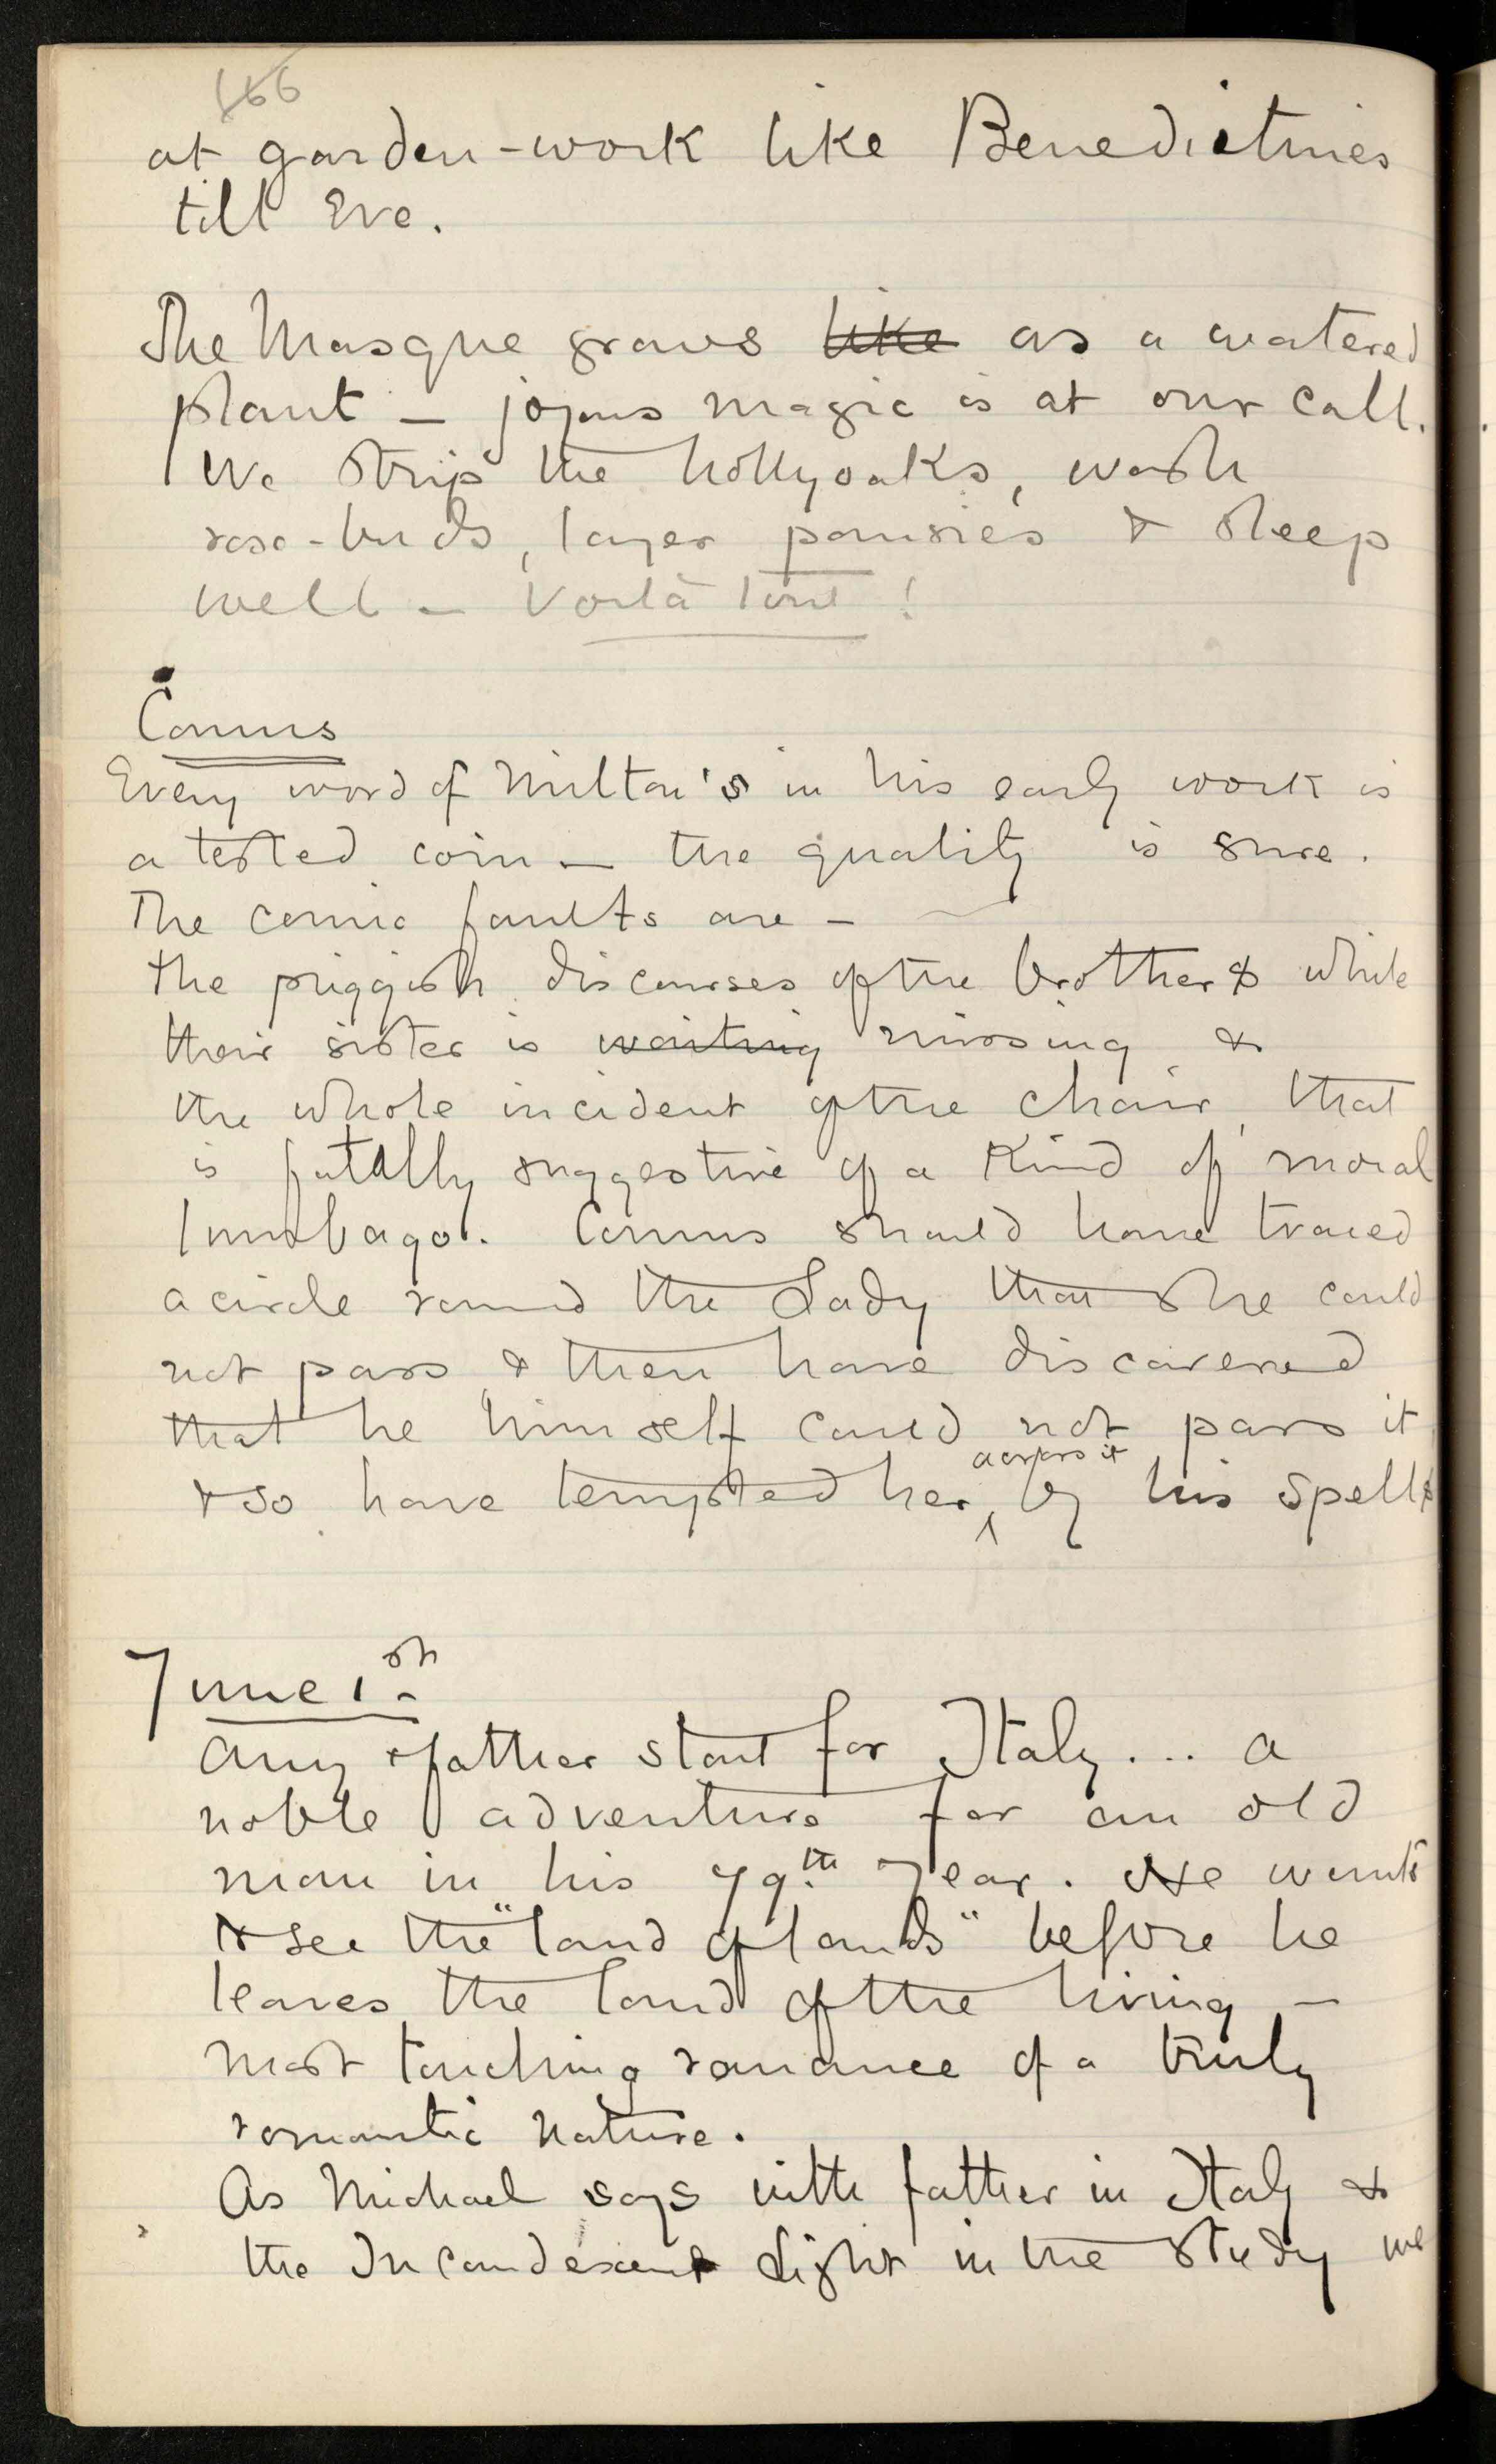 166
at garden-work like Benedictines
till Eve.
The Masque grows ~~like~~ as a watered
plant — joyous magic is at our call.
We strip the hollyoaks, wash
rose-buds, layer pansies & sleep
well — Voilà tout !
Comus
Every word of Milton's in his early work is
a tested coin — the quality is sure.
The comic faults are —
the priggish discourses of the brothers while
their sister is ~~waiting~~ missing &
the whole incident of the chair, that
is fatally suggestive of a kind of moral
lumbago. Comus should have traced
a circle round the Lady that she could
not pass & then have discovered
that he himself could not pass it
& so have tempted her across it by his spells
June 1st
Amy & father start for Italy... a
noble adventure for an old
man in his 79th year. He wants
to see the "land of lands" before he
leaves the land of the living —
most touching romance of a truly
romantic nature.
As Michael says with father in Italy &
the Incandescent Light in the study we